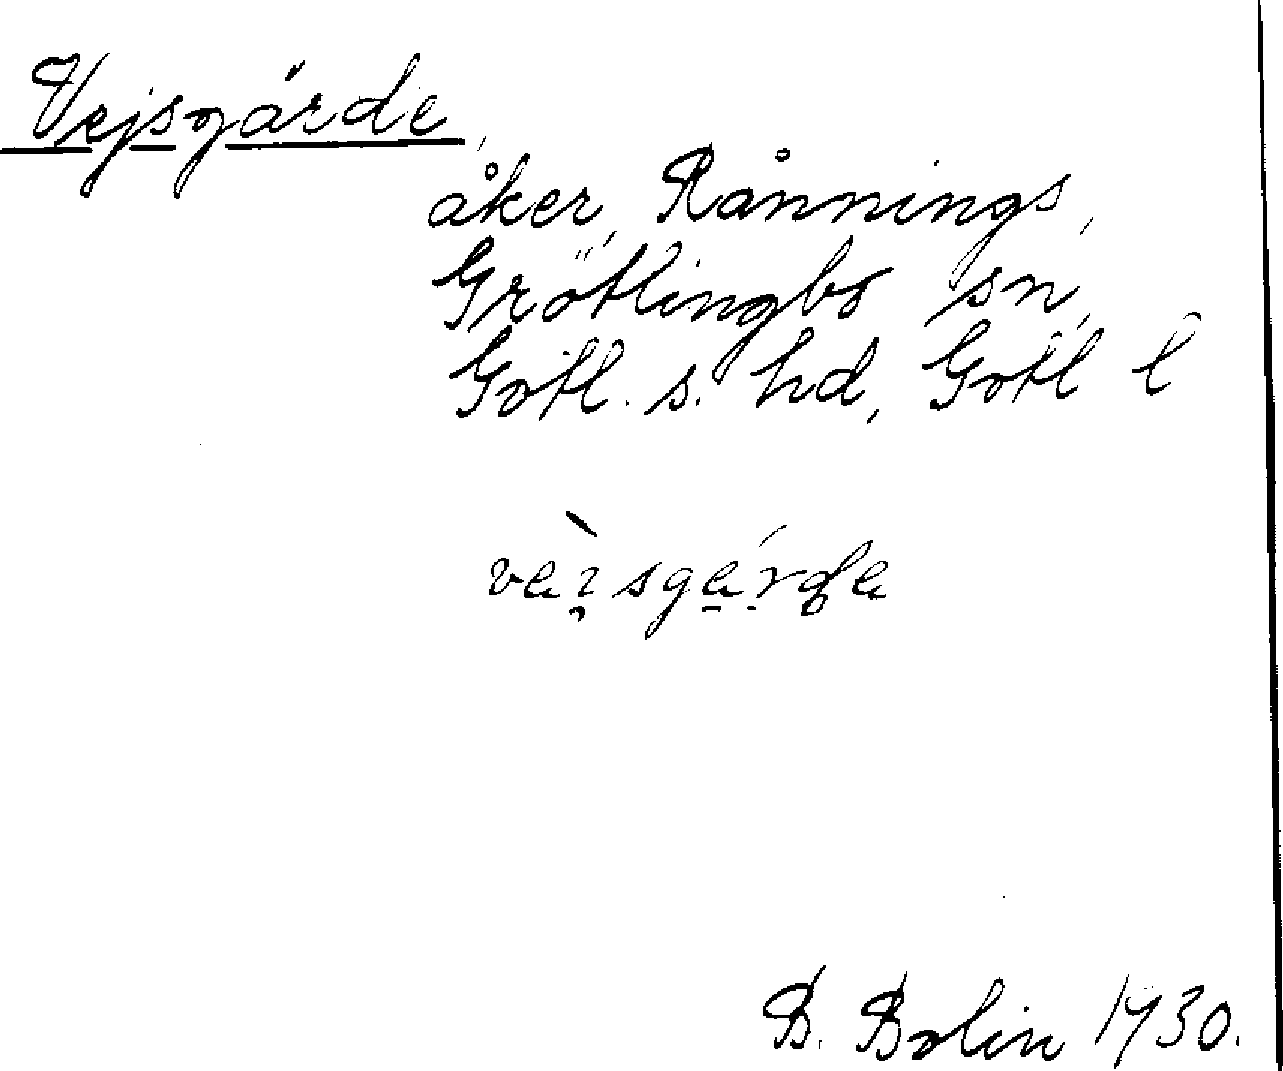 Vejsgärde,
åker, Rånnings,
Grötlingbo sn,
Gotl. s. hd, Gotl l
B. Bolin 1930.